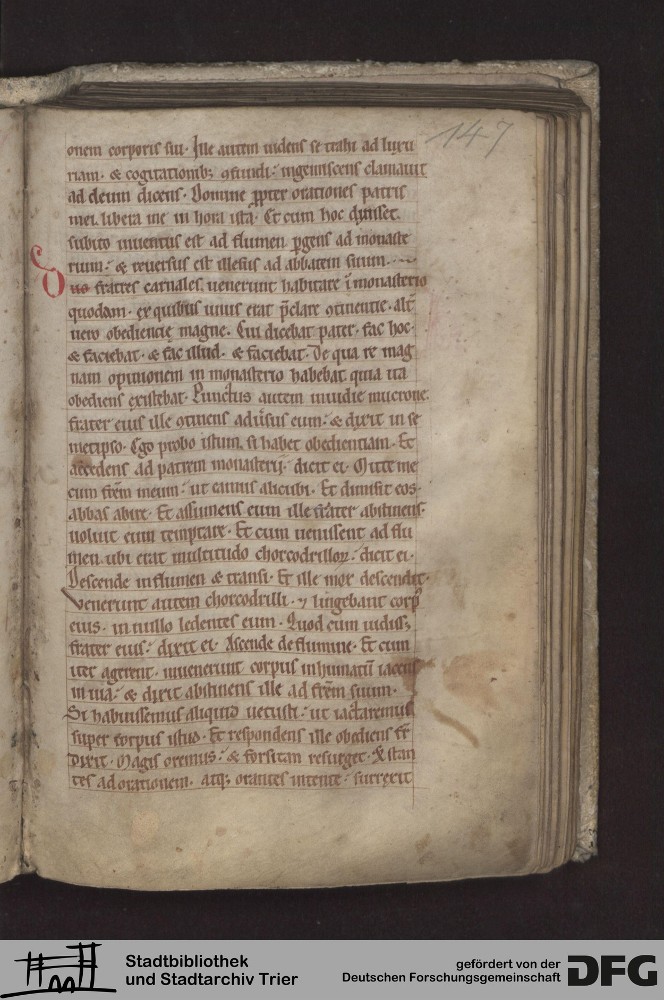 147
onem corporis sui. Ille autem uidens se trahi ad luxu
riam. & cogitationibꝫ ꝯfundi. ingemiscens clamauit
ad deum dicens. Domine ꝓpter orationes patris
mei. libera me in hora ista. Et cum hoc dixisset.
subito inuentus est ad flumen ꝑgens ad monaste
rium. & reuersus est illesus ad abbatem suum.
Duo fratres carnales. uenerunt habitare ī monasterio
quodam. ex quibus unus erat p̄clare ꝯtinentie. alt̄
uero obediencie magne. Cui dicebat pater. fac hoc.
& faciebat. & fac illud. & faciebat. De qua re mag
nam opinionem in monasterio habebat quia ita
obediens existebat. Punctus autem inuidie mucrone
frater eius ille ꝯtinens aduʼsus eum. & dixit in se
metipso. Ego probo istum. si habet obedientiam. Et
accedens ad patrem monasterij. dicit ei. Mitte me
cum fr̄em meum. ut eamus alicubi. Et dimisit eos.
abbas abire. Et assumens eum ille frater abstinens.
uoluit eum temptare. Et cum uenissent ad flu
men. ubi erat multitudo chorcodrilloꝝ. dicit ei.
Descende in flumen & transi. Et ille mox descendit.
Venerunt autem chorcodrilli. ⁊ lingebant corp̄
eius. in nullo ledentes eum. Quod cum uidissꝫ
frater eius. dixit ei. Ascende de flumine. Et cum
iter agerent. inuenerunt corpus inhumatū iacens
in uia. & dixit abstinens ille ad fr̄em suum.
Si habuissemus aliquid uetusti. ut iactaremus
super corpus istud. Et respondens ille obediens fr̄
dixit. Magis oremus. & forsitan resurget. Et stan
tes ad orationem. atqꝫ orantes intente. surrexit
Stadtbibliothek
und Stadtarchiv Trier
gefördert von der
Deutschen Forschungsgemeinschaft
DFG